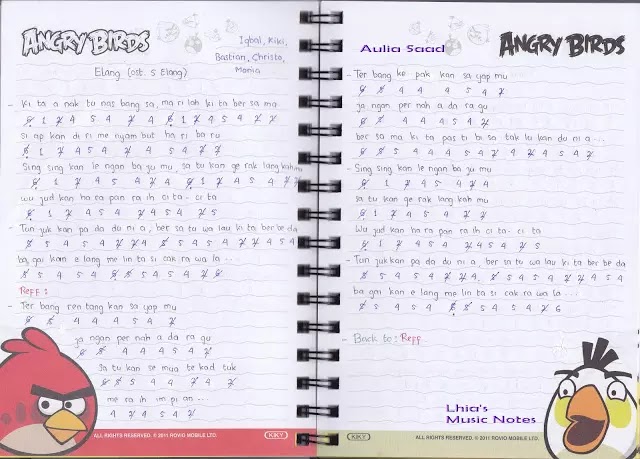 ANGRY BIRDS
Iqbal, Kiki,
Bastian, Christo,
Maria
Elang (ost. 5 Elang)
- Ki ta a nak tu nas bang sa, ma ri lah ki ta ber sa ma
1 4 5 4 4 1 4 5 4
si ap kan di ri me nyam but ha ri ba ru
1 4 5 4 4 5 4
Sing sing kan le ngan ba ju mu, sa tu kan ge rak lang kah mu
1 4 5 4 4 1 4 5 4
wu jud kan ha ra pan ra ih ci ta - ci ta
1 4 5 4 4 5 4 5
- Tun juk kan pa da du ni a, ber sa tu wa lau ki ta ber be da
5 4 5 4 4 5 4 5 4 4 5 4
ba gai kan e lang me lin ta si cak ra wa la ...
5 4 5 4 5 4 5 4
Reff :
- Ter bang ren tang kan sa yap mu
4 4 4 5 4
ja ngan per nah a da ra gu
4 4 4 5 4
Sa tu kan se mua te kad tuk
5 4 4 4
me ra ih im pi an ...
4 4 5 4
ALL RIGHTS RESERVED. © 2011 ROVIO MOBILE LTD.
KIKY
Aulia Saad
ANGRY BIRDS
- Ter bang ke pak kan sa yap mu
4 4 4 5 4
ja ngan per nah a da ra gu
4 4 4 5 4
ber sa ma ki ta pas ti bi sa tak lu kan du ni a ...
5 4 5 4 5 4 5 4
- Sing sing kan le ngan ba ju mu
1 4 5 4 4
sa tu kan ge rak lang kah mu
1 4 5 4
Wu jud kan ha ra pan ra ih ci ta - ci ta
1 4 5 4 4 5 4 5
- Tun juk kan pa da du ni a, ber sa tu wa lau ki ta ber be da
5 4 5 4 4 5 4 5 4 4 5 4
ba gai kan e lang me lin ta si cak ra wa la ...
5 4 5 4 5 4 5 4
- Back to : Reff
Lhia's
Music Notes
KIKY
ALL RIGHTS RESERVED. © 2011 ROVIO MOBILE LTD.